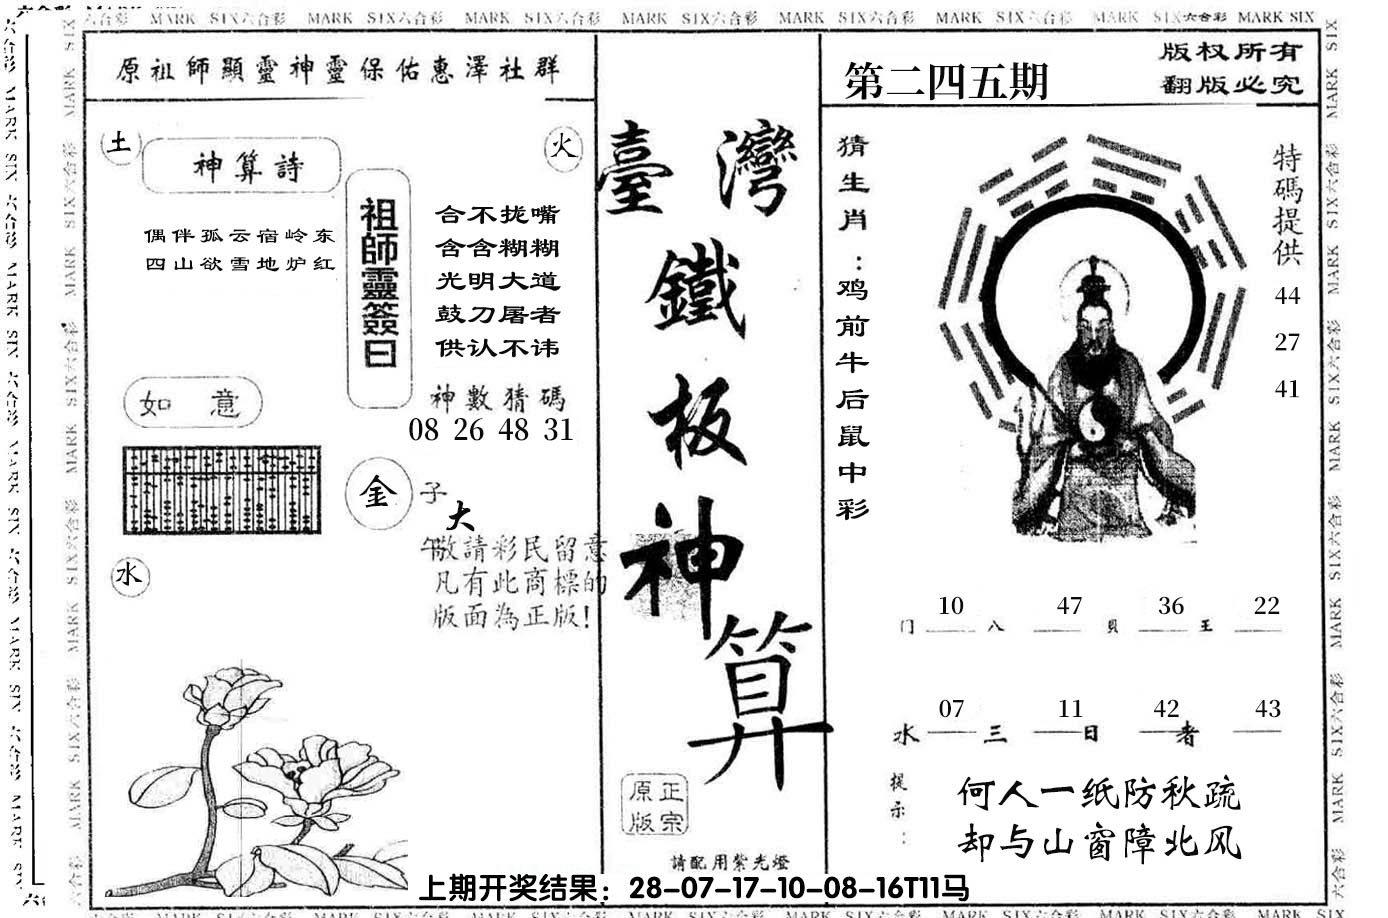 原祖師顯靈神靈保佑惠澤社群
土
神算詩
火
偶伴孤云宿岭东
四山欲雪地炉红
祖師靈簽曰
合不拢嘴
含含糊糊
光明大道
鼓刀屠者
供认不讳
神數猜碼
08 26 48 31
如 意
金
子
大
午
敬請彩民留意
凡有此商標的
版面為正版!
水
臺灣
鐵
板
神
算
正宗
原版
請配用紫光燈
第二四五期
版权所有
翻版必究
猜生肖:鸡前牛后鼠中彩
特碼提供
44
27
41
10 47 36 22
门 八 贝 王
07 11 42 43
水 三 日 者
提示:
何人一纸防秋疏
却与山窗障北风
上期开奖结果：28-07-17-10-08-16T11马
MARK SIX六合彩 MARK SIX六合彩 MARK SIX六合彩 MARK SIX六合彩 MARK SIX六合彩 MARK SIX六合彩 MARK SIX六合彩 MARK SIX